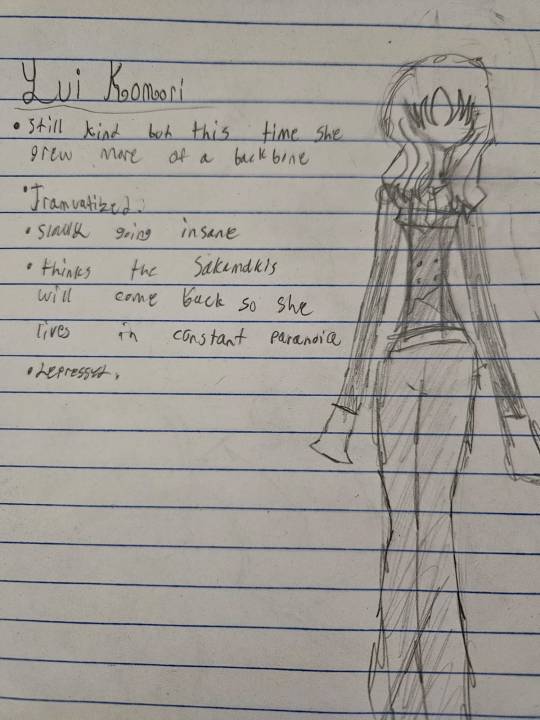 Yui Komori
• Still kind but this time she
grew more of a backbone
• Tramuatized.
• slowly going insane
• thinks the Sakamakis
will come back so she
lives in constant paranoia
• Depressed.